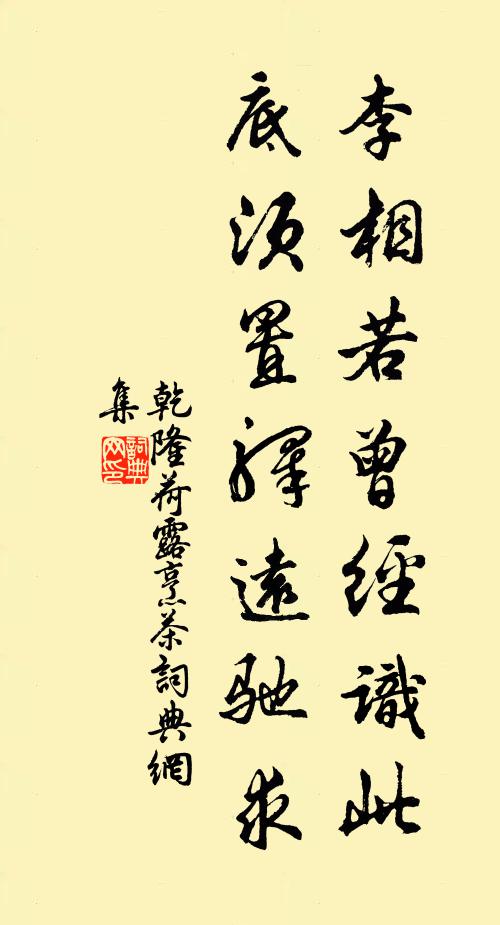 李相若曾經識此
底須置驛遠馳求
乾隆荷露烹茶詞典網
集
詞典网印